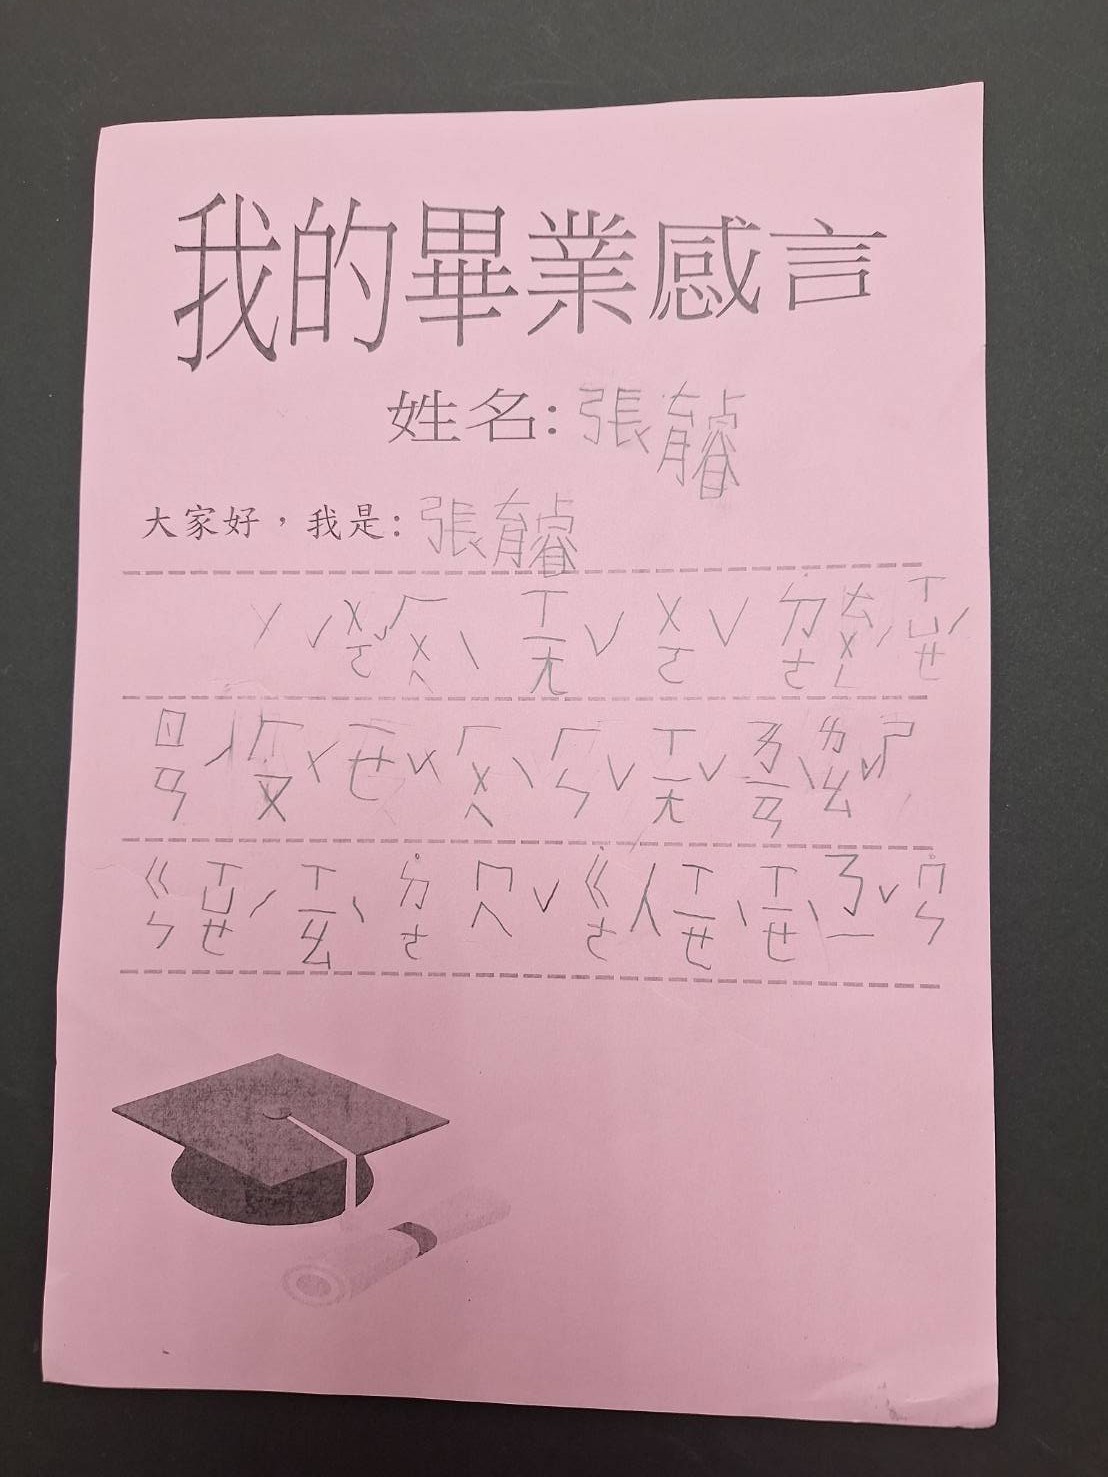 我的畢業感言
姓名:張育睿
大家好，我是:張育睿
ㄨㄛˇ ㄏㄨㄟˋ ㄒㄧㄤˇ ㄨㄛˇ ˙ㄉㄜ ㄊㄨㄥˊ ㄒㄩㄝˊ
ㄖㄢˊ ㄏㄡˋ ㄧㄝˇ ㄏㄨㄟˋ ㄏㄣˇ ㄒㄧㄤˇ ㄋㄧㄢˋ ㄌㄠˇ ㄕ
ㄍㄣ ㄒㄩㄝˊ ㄒㄧㄠˋ ˙ㄉㄜ ㄇㄟˇ ˙ㄍㄜ 人 ㄒㄧㄝˋ ㄒㄧㄝˋ ㄋㄧˇ ˙ㄇㄣ